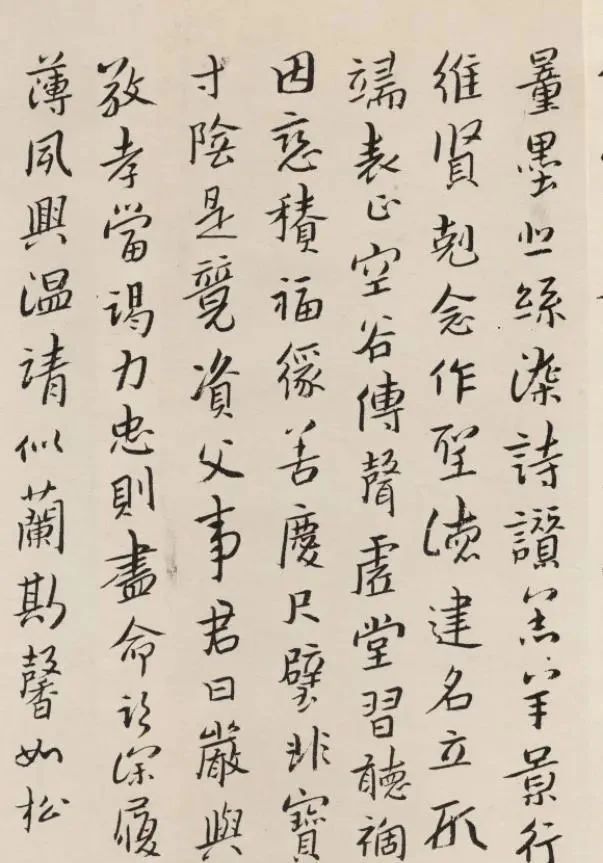 量墨悲絲染詩讃羔羊景行
維賢剋念作聖德建名立形
端表正空谷傳聲虛堂習聽禍
因惡積福緣善慶尺璧非寶
寸陰是競資父事君曰嚴與
敬孝當竭力忠則盡命臨深履
薄夙興温清似蘭斯馨如松